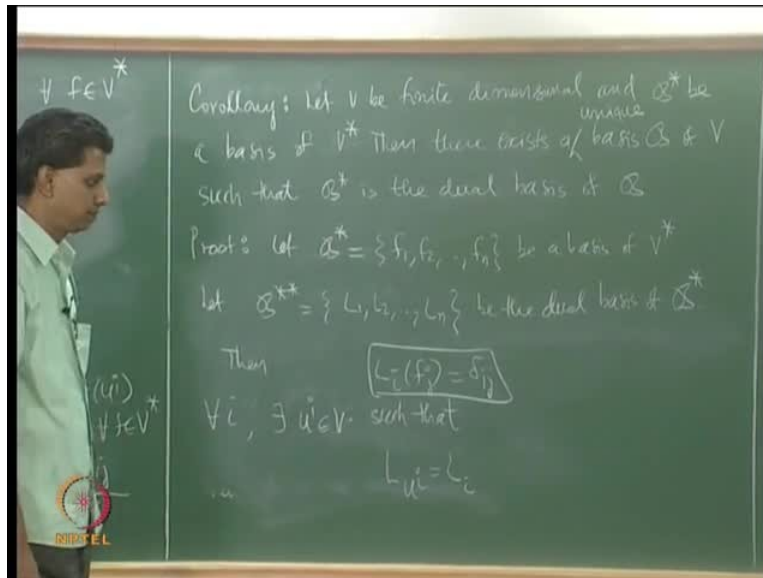 ∀ f ∈ V*
Corollary: Let V be finite dimensional and ℬ* be
a basis of V* Then there exists a unique basis ℬ of V
such that ℬ* is the dual basis of ℬ
Proof: Let ℬ* = {f₁, f₂, .., fₙ} be a basis of V*
Let ℬ** = {L₁, L₂, .., Lₙ} be the dual basis of ℬ*
Then Lᵢ(fⱼ) = δᵢⱼ
(uⁱ)
∀ f ∈ V*
∀ i, ∃ uⁱ ∈ V such that
L_{uⁱ} = Lᵢ
NPTEL